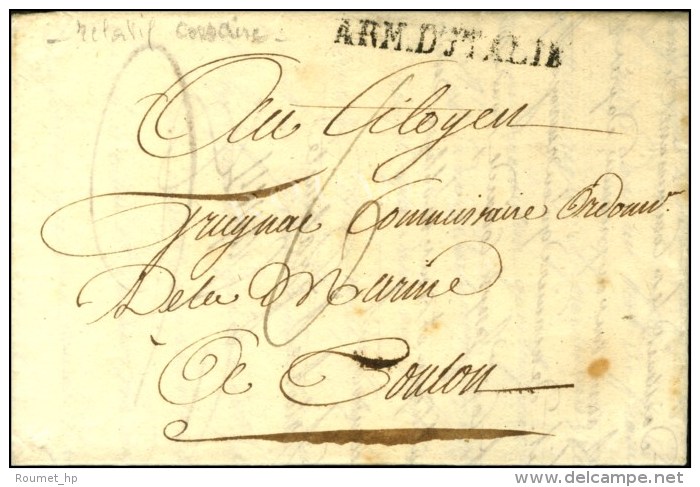 - relatif corsaire -
ARM. D'ITALIE
Au Citoyen
Truguet Commissaire Ordonr.
De la Marine
A Toulon
Roumet_hp
©delcampe.net